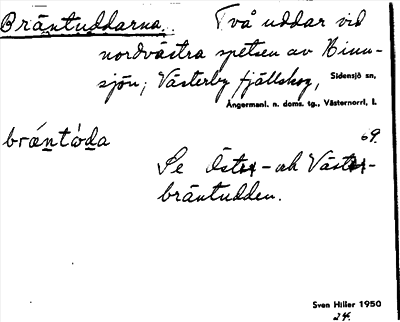 Bräntuddarna. Två uddar vid
nordvästra spetsen av Hinn-
sjön; Västerby fjällskog, Sidensjö sn,
Ångermanl. n. doms. tg., Västernorrl. l.
bräntὠda 69.
Se Öster- och Väster-
bräntudden.
Sven Hiller 1950
24.